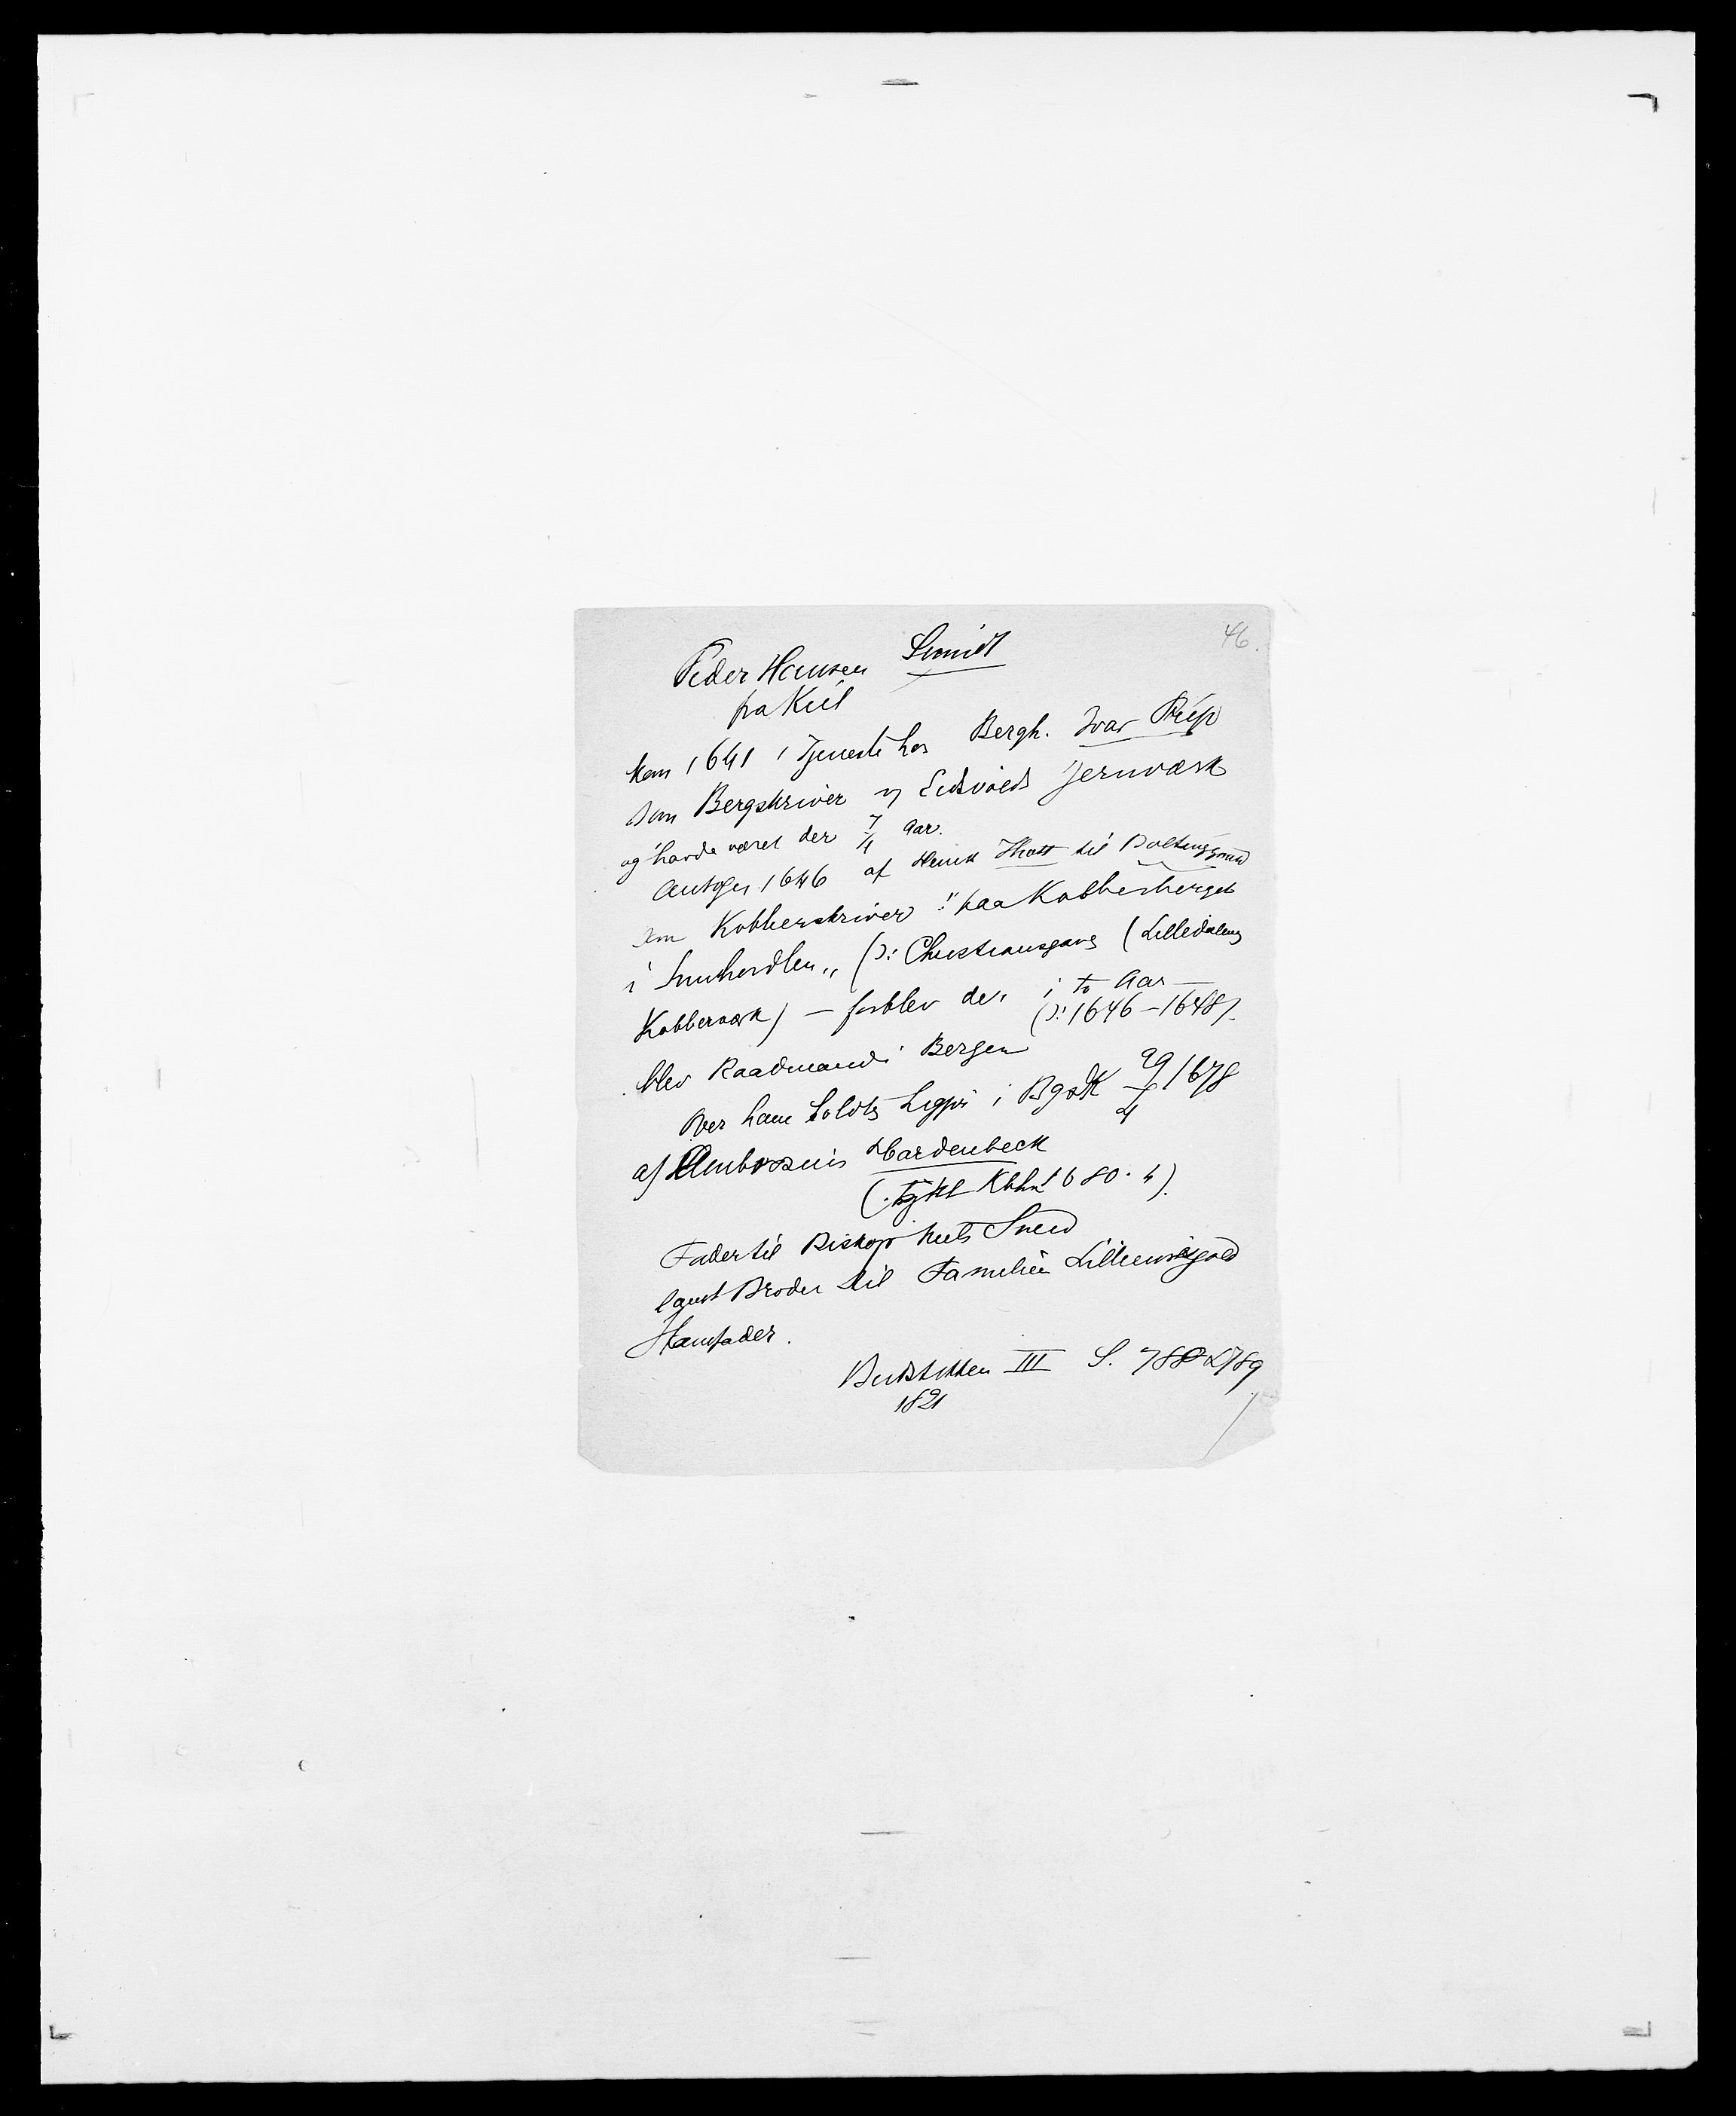 46.
Peder Hansen Smidt
fra Kiil
kom 1641 i Tjeneste hos Bergh. Ivar Prip
som Bergskriver v Eidsvolds Jernværk
og havde været der 7/4 Aar.
Antoges 1646 af Henrik Thott til Boltinggaard
som Kobberskriver "paa Kobberberget
i Sunhordlen" (ɔ: Christiansgave (Lilledalens
Kobberværk) – forblev der i to Aar –
(ɔ: 1646–1648).
blev Raadmand i Bergen
Over ham holdts Ligpr i BgdK 29/4 1678
af Ambrosius Hardenbeck
(Trykt Kbhn 1680. 4).
Fader til Biskop Niels Smed
Broder til Familien Lillienskjold
Stamfader.
Budstikken III S. 788 & 789
1821